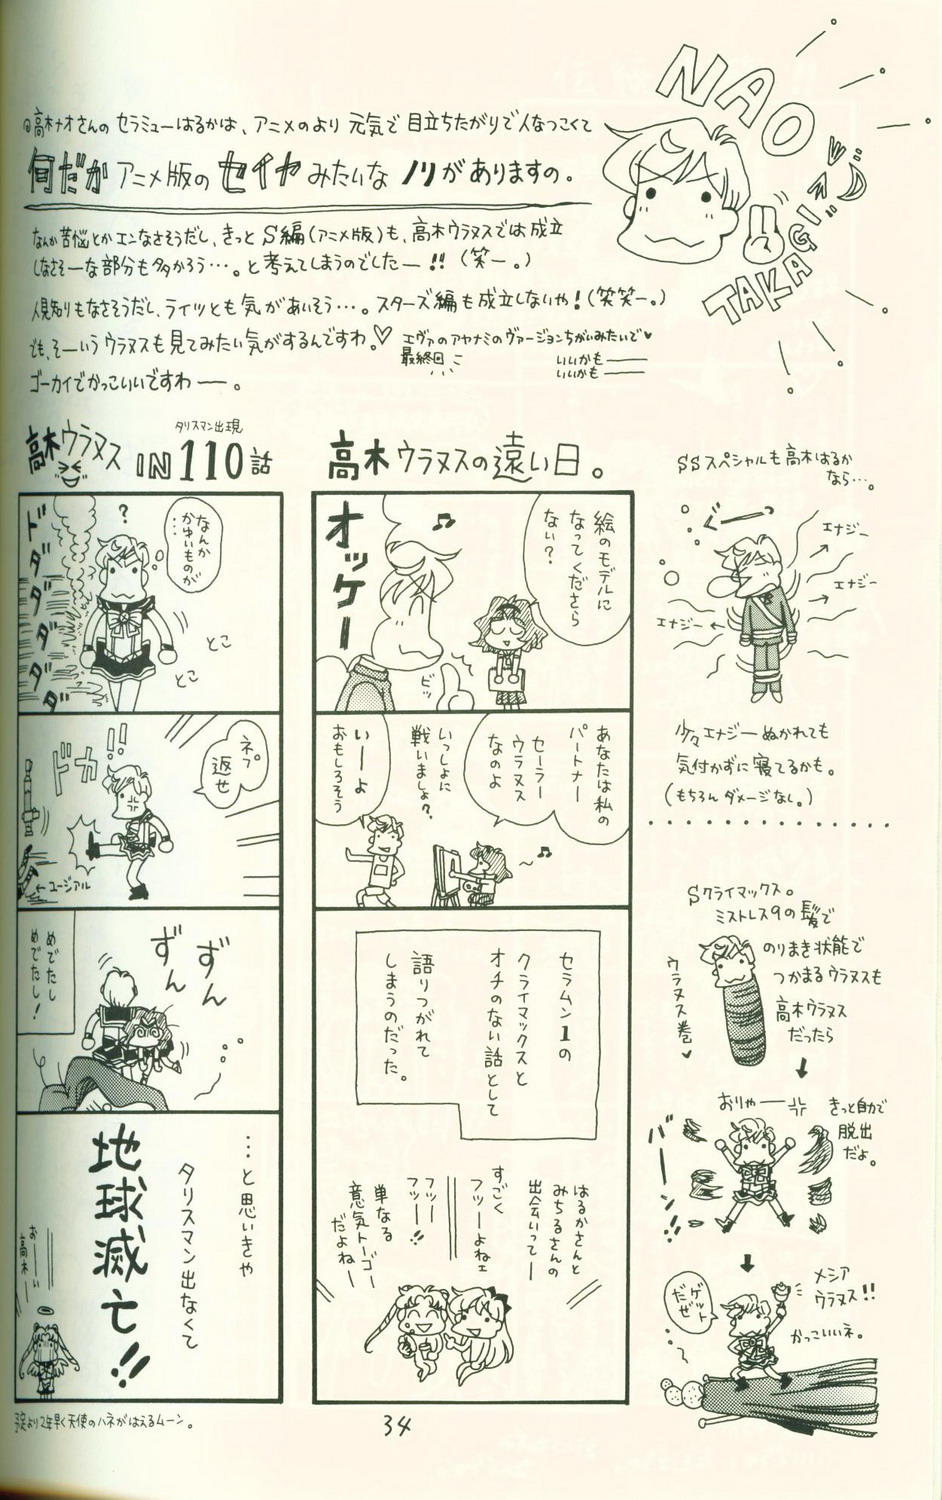 NAO
TAKAGI
高木ナオさんの セラミューはるかは、アニメのより 元気で 目立ちたがりで人なつこくて
何だか アニメ版の セイヤ みたいな ノリが ありますの。
なんか苦悩とかエンなさそうだし、きっと S編(アニメ版)も、高木ウラヌスでは成立
しなさそーな部分も多かろう…。と考えてしまうのでしたー!! (笑ー。)
人見知りもなさそうだし、ライツとも 気があいそう…。スターズ編も成立しないや!(笑笑ー。)
でも、そーいうウラヌスも見てみたい気がするんですわ。♡
エヴァのアヤナミのヴァージョンちがいみたいで♥
最終回
いいかも――
いいかも――
ゴーカイでかっこいいですわ――。
高木ウラヌス
タリスマン出現
IN 110話
?
なんか
かゆいものが
…
ドダダダダダ
とこ
とこ
ドカ!!
ネプ
返せ
←ユージアル
ずん
ずん
めでたし
めでたし!
…と思いきや
タリスマン出なくて
地球滅亡!!
おーーい
高木ー
予定より2年早く天使のハネがはえるムーン。
高木ウラヌスの遠い日。
絵のモデルに
なってくださら
ない?
オッケー
ビッ
あなたは私の
パートナー
セーラー
ウラヌス
なのよ
いっしょに
戦いましょ?
いーよ
おもしろそう
セラムン1の
クライマックスと
オチのない話として
語りつがれて
しまうのだった。
はるかさんと
みちるさんの
出会いって―
すごく
フツーよねェ
フツー
フツー!!
単なる
意気トーゴー
だよねー
34
SSスペシャルも高木はるか
なら…。
ぐーっ
エナジー
エナジー
エナジー
少々エナジーぬかれても
気付かずに寝てるかも。
(もちろんダメージなし。)
Sクライマックス。
ミストレス9の髪で
のりまき状態で
つかまるウラヌスも
高木ウラヌス
だったら
ウラヌス巻♥
おりゃー
きっと自力で
脱出
だよ。
バーン
ゲット
だぜ
メシア
ウラヌス!!
かっこいいネ。